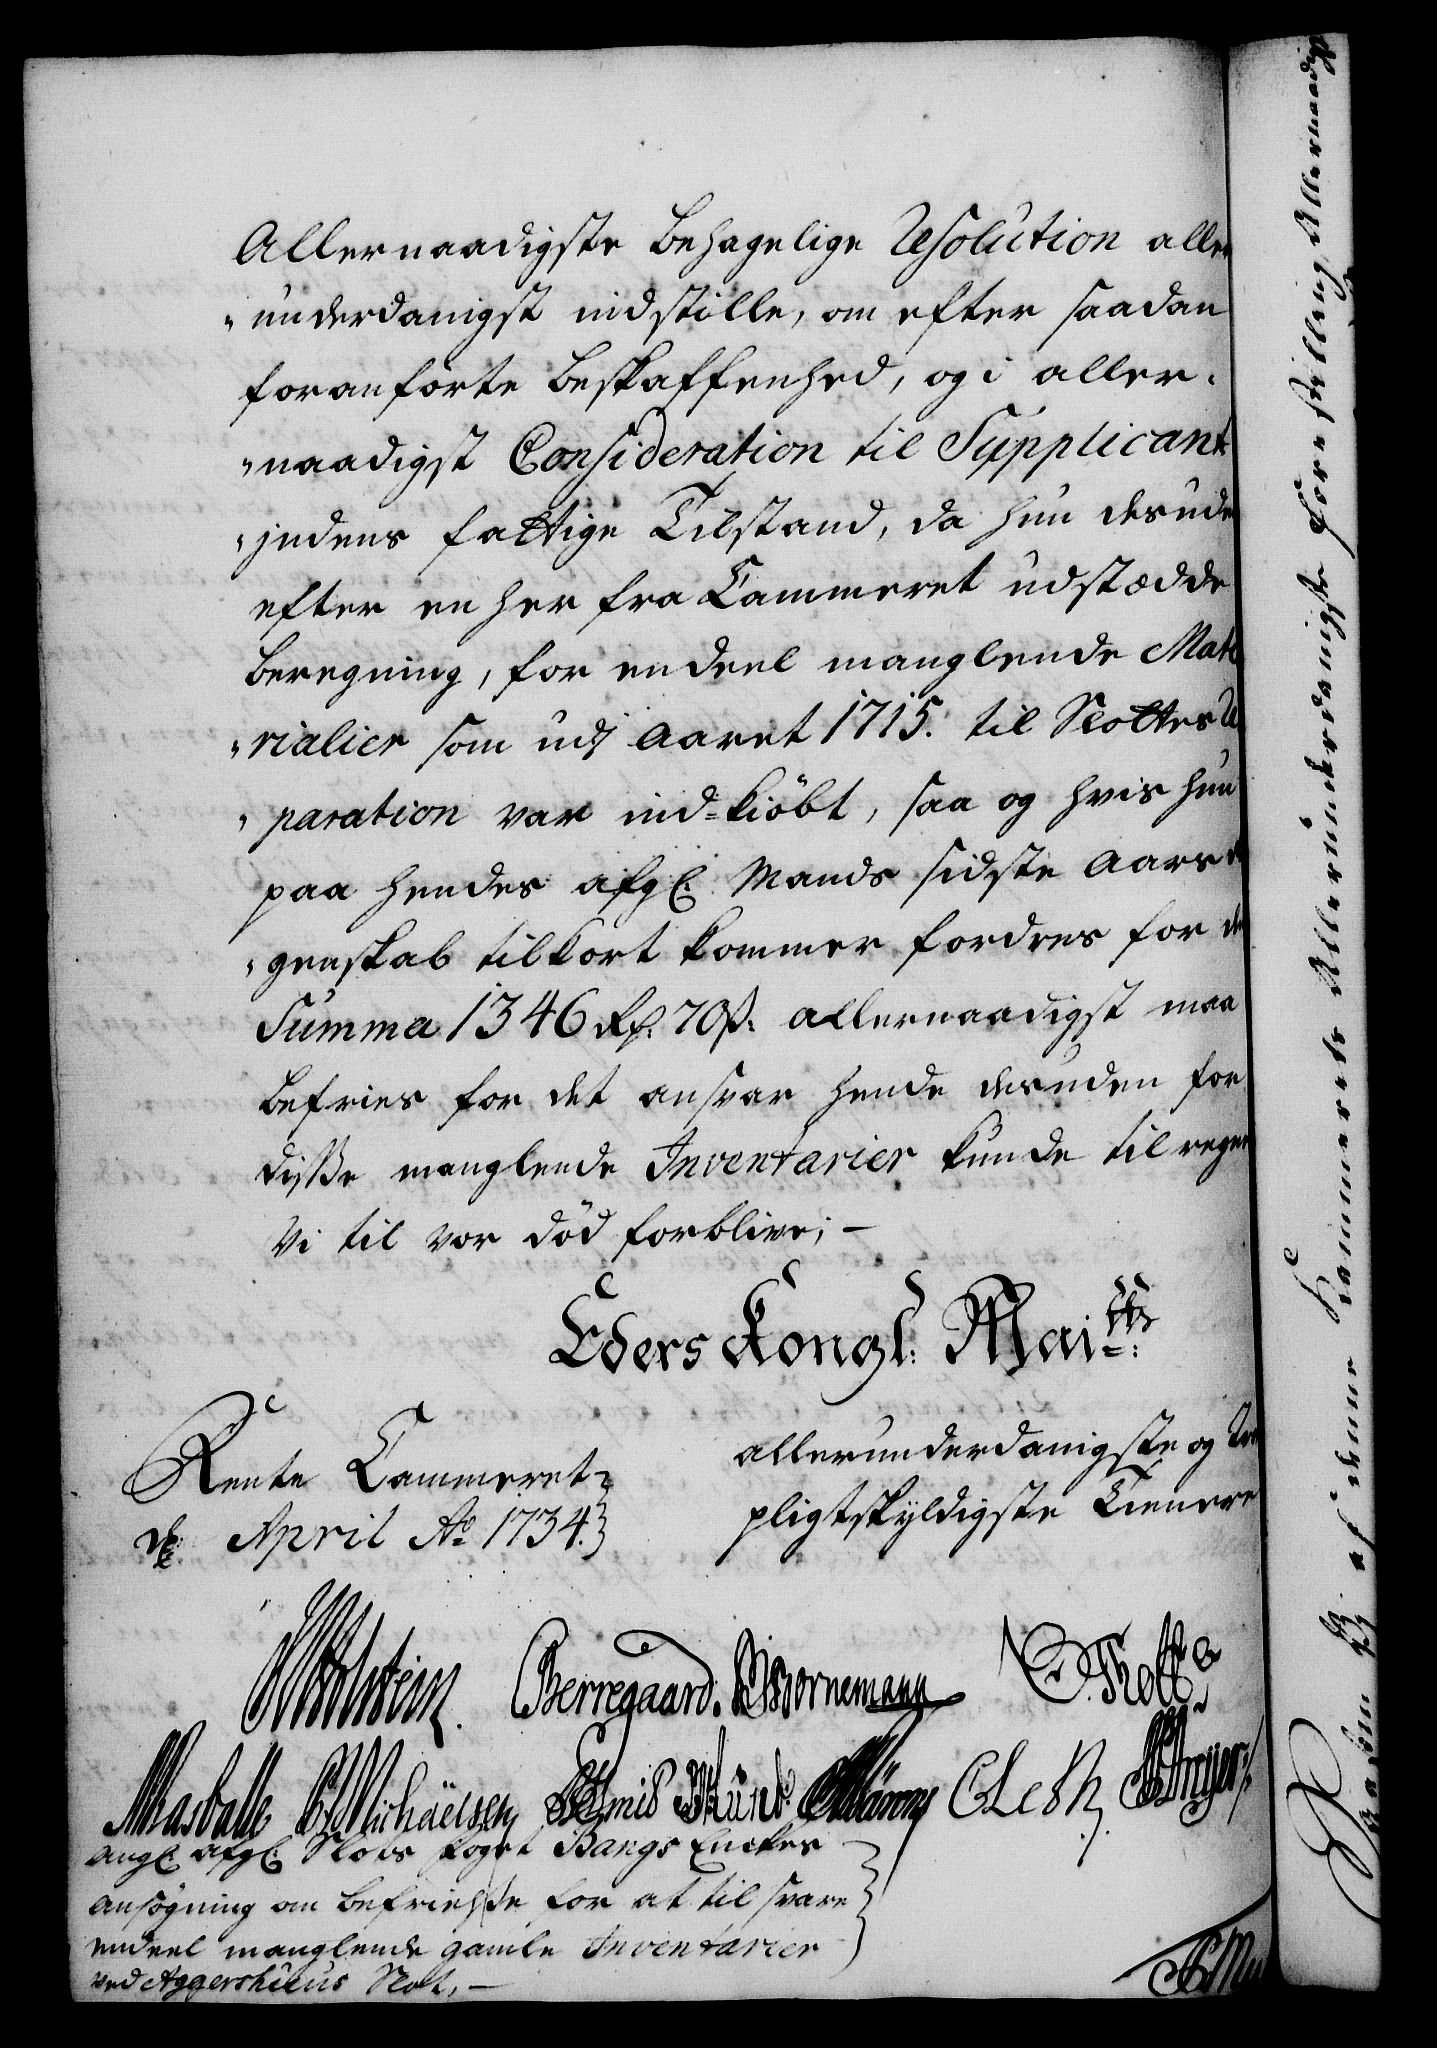 Allernaadigste behagelige Resolution aller
„underdanigst indstille, om efter saadan
foranförte beskaffenhed, og i aller-
„naadigst Consideration til Supplicant
„indens fattige Tilstand, da hun desude
efter en her fra Cammeret udstædde
beregning, for endeel manglende Mate
„rialier som udj Aaret 1715. til Slottes Re
„paration var ind=kiöbt, saa og hvis hun
paa hendes afgl: Mands sidste Aars Re
„genskab tilkort kommer fordres for en
Summa 1346 Rd: 70 s: allernaadigst maa
befries for det ansvar hende desuden for
disse manglende Inventarier kunde tilregnes
Vi til vor död forblive; —
Eders Kongl: Maitts:
Rente Cammeret
d: April Ao 1734.
allerunderdanigste og tro
pligtskyldigste Tienere
Holstein. Berregaard. Bornemann Thott
Rasballe Michäelsen Munk C Leth Dreyer
Angl: afgl: Slots foget Bangs Enckes
Ansögning om befrielse for at tilsvare
endeel manglende gamle Inventarier
ved Aggershuus Slot, —
af denne Cammerets Allerunderdanigste Forestilling Allernaadigst